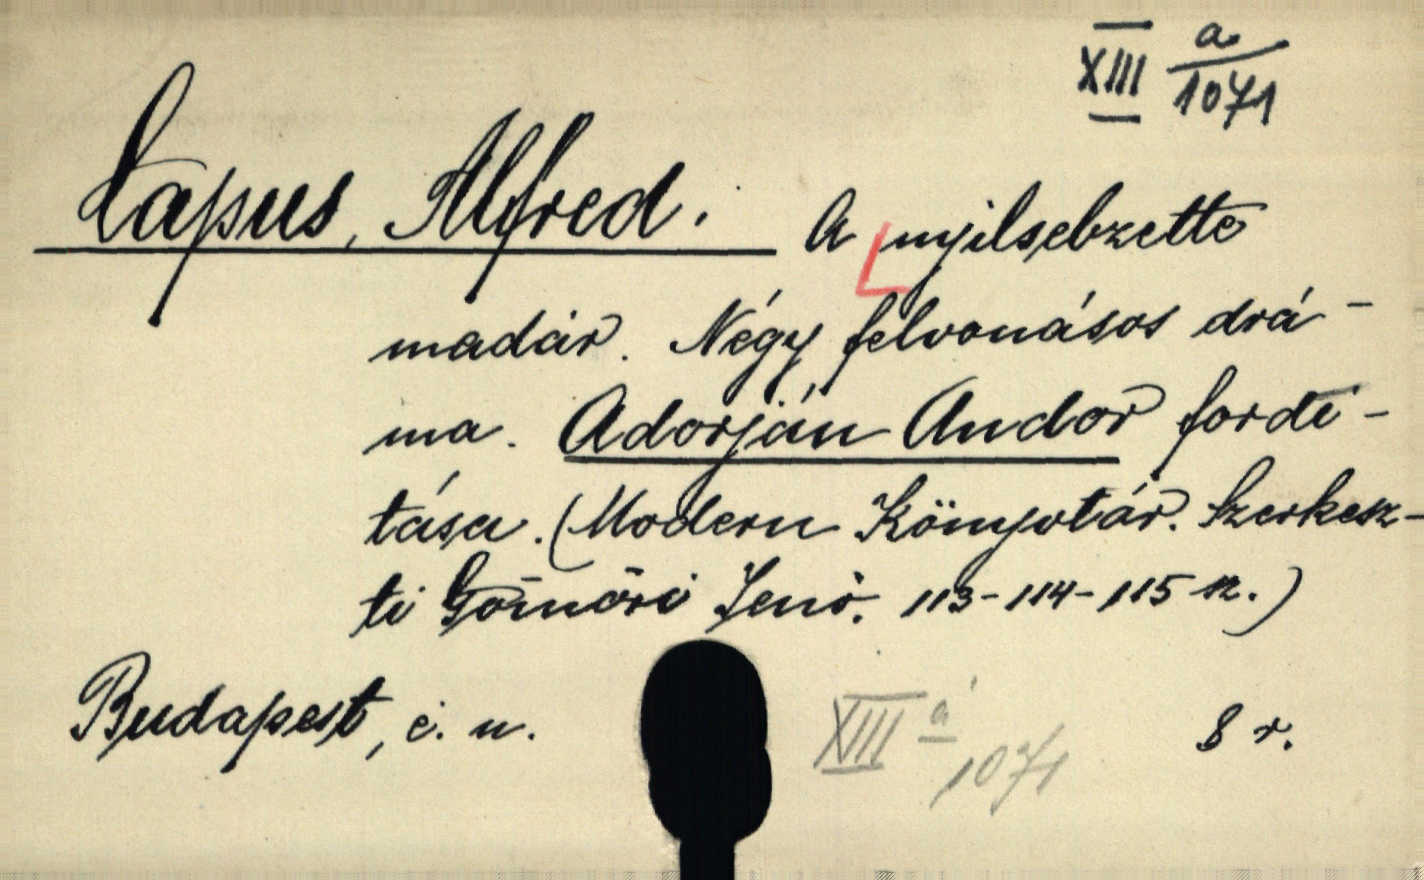 XIII a/1071
Capus, Alfred. A nyilsebzette
madár. Négy felvonásos drá-
ma. Adorján Andor fordi-
tása. (Modern Könyvtár. Szerkesz-
ti Gömöri Jenő. 113-114-115 sz.)
Budapest, é. n. 8 r.
XIII a 1071